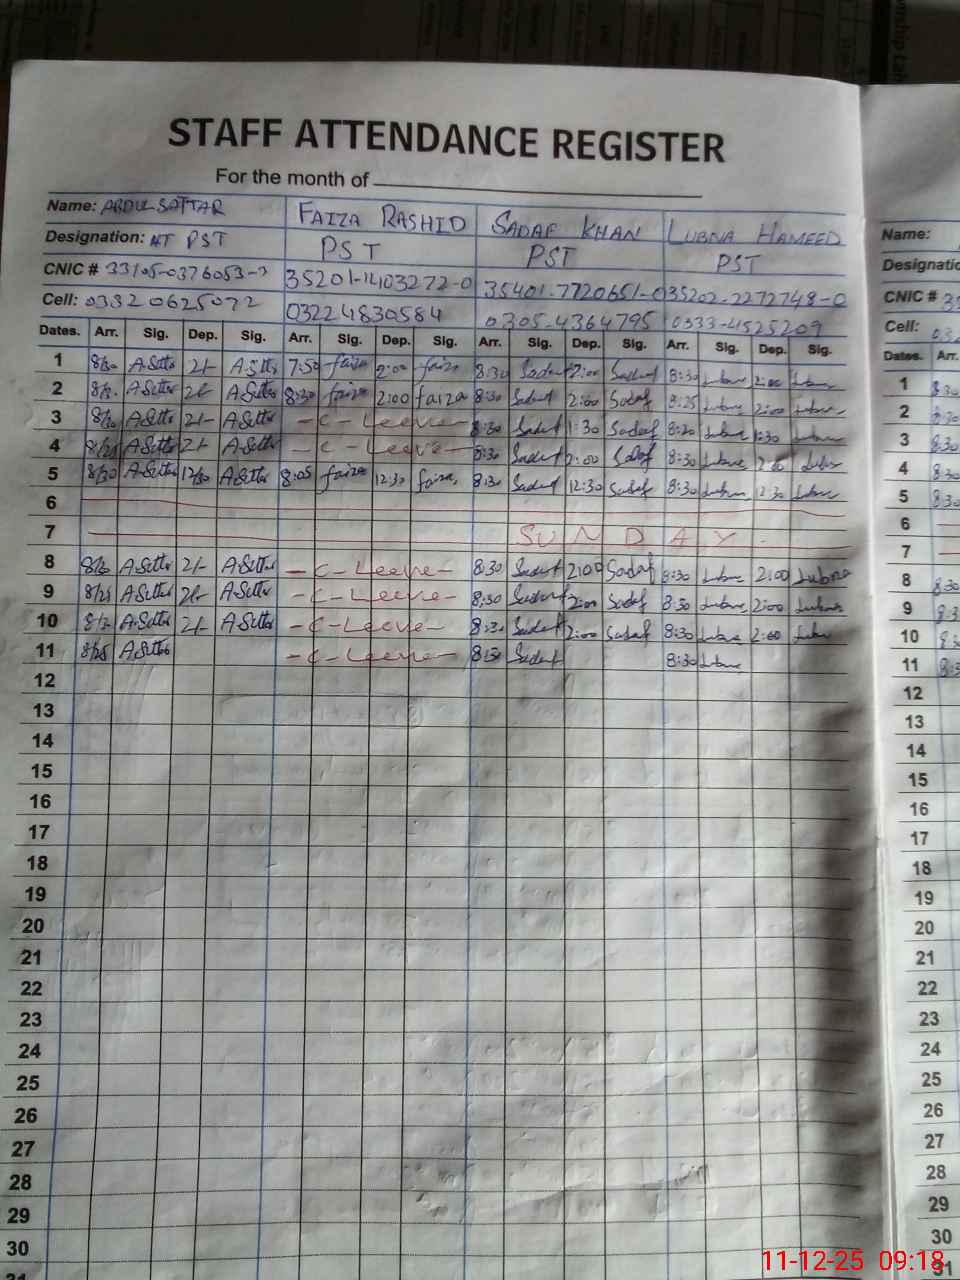 STAFF ATTENDANCE REGISTER
For the month of
Name: ABDUL SATTAR FAIZA RASHID SADAF KHAN LUBNA HAMEED
Designation: HT PST PST PST PST
CNIC # 33105-0376053-7 35201-1403272-0 35401-7720651-0 35202-2272748-0
Cell: 03320625072 03224830584 0305-4364795 0333-4525209
Dates. Arr. Sig. Dep. Sig. Arr. Sig. Dep. Sig. Arr. Sig. Dep. Sig. Arr. Sig. Dep. Sig.
1 8/30 A.Sattar 2/- A.Sattar 7:50 faiza 2:00 faiza 8:30 Sadaf 2:00 Sadaf 8:30 Lubna 2:00 Lubna
2 A.Sattar 2/- A.Sattar 8:30 faiza 2:00 faiza 8:30 Sadaf 2:00 Sadaf 8:25 Lubna 2:00 Lubna
3 A.Sattar 2/- A.Sattar - C - Leeve - 8:30 Sadaf 1:30 Sadaf 8:20 Lubna 1:30 Lubna
4 A.Sattar 2/- A.Sattar - C - Leeve - 8:30 Sadaf 2:00 Sadaf 8:30 Lubna 2:00 Lubna
5 8/30 A.Sattar 12/30 A.Sattar 8:05 faiza 12:30 faiza 8:30 Sadaf 12:30 Sadaf 8:30 Lubna 12:30 Lubna
6
7 SUNDAY
8 A.Sattar 2/- A.Sattar - C - Leeve - 8:30 Sadaf 2:00 Sadaf 8:30 Lubna 2:00 Lubna
9 8/25 A.Sattar 2/- A.Sattar - C - Leeve - 8:30 Sadaf 2:00 Sadaf 8:30 Lubna 2:00 Lubna
10 A.Sattar 2/- A.Sattar - C - Leeve - 8:30 Sadaf 2:00 Sadaf 8:30 Lubna 2:00 Lubna
11 8/25 A.Sattar - C - Leeve - 8:30 Sadaf 8:30 Lubna
12
13
14
15
16
17
18
19
20
21
22
23
24
25
26
27
28
29
30
31
Name:
Designatio
CNIC #
Cell:
Dates. Arr.
1 8:30
2 8:30
3 8:30
4 8:30
5 8:30
6
7
8 8:30
9
10
11
12
13
14
15
16
17
18
19
20
21
22
23
24
25
26
27
28
29
30
31
11-12-25 09:18